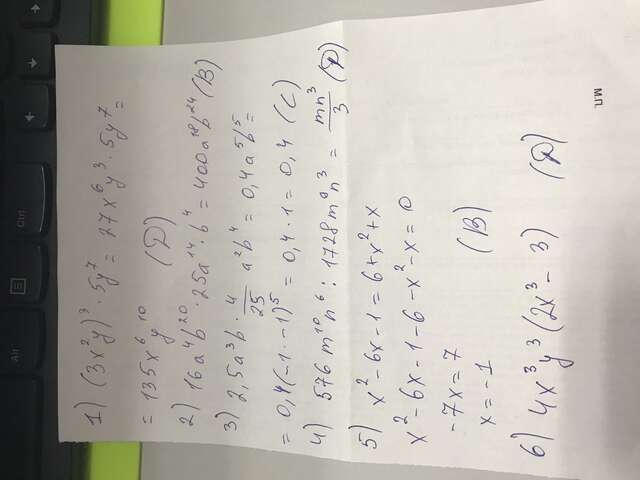 1) (3x²y)³ · 5y⁷ = 27x⁶y³ · 5y⁷ =
= 135x⁶y¹⁰ (D)
2) 16a⁴b²⁰ · 25a¹⁴ · b⁴ = 400a¹⁸b²⁴ (B)
3) 2,5a³b · 4/25 a²b⁴ = 0,4a⁵b⁵ =
= 0,4(-1 · -1)⁵ = 0,4 · 1 = 0,4 (C)
4) 576m¹⁰n⁶ : 1728m⁹n³ = mn³/3 (D)
5) x² - 6x - 1 = 6 + x² + x
x² - 6x - 1 - 6 - x² - x = 0
-7x = 7
x = -1 (B)
6) 4x³y³(2x³ - 3) (D)
М.П.
Ctrl
Alt